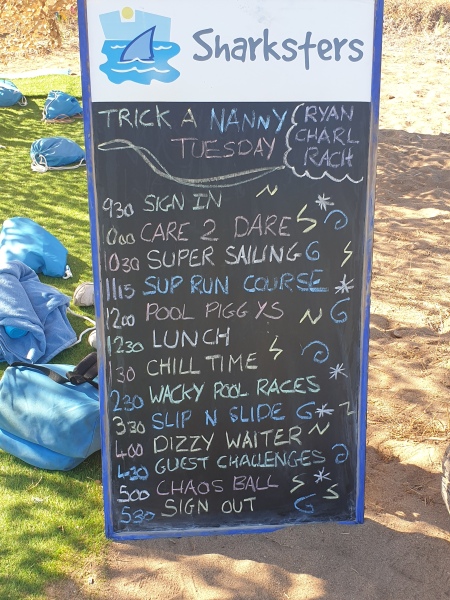 Sharksters
TRICK A NANNY
TUESDAY
RYAN
CHARL
RACH
930 SIGN IN
1000 CARE 2 DARE
1030 SUPER SAILING
1115 SUP RUN COURSE
1200 POOL PIGGYS
1230 LUNCH
130 CHILL TIME
230 WACKY POOL RACES
330 SLIP N SLIDE
400 DIZZY WAITER
430 GUEST CHALLENGES
500 CHAOS BALL
530 SIGN OUT